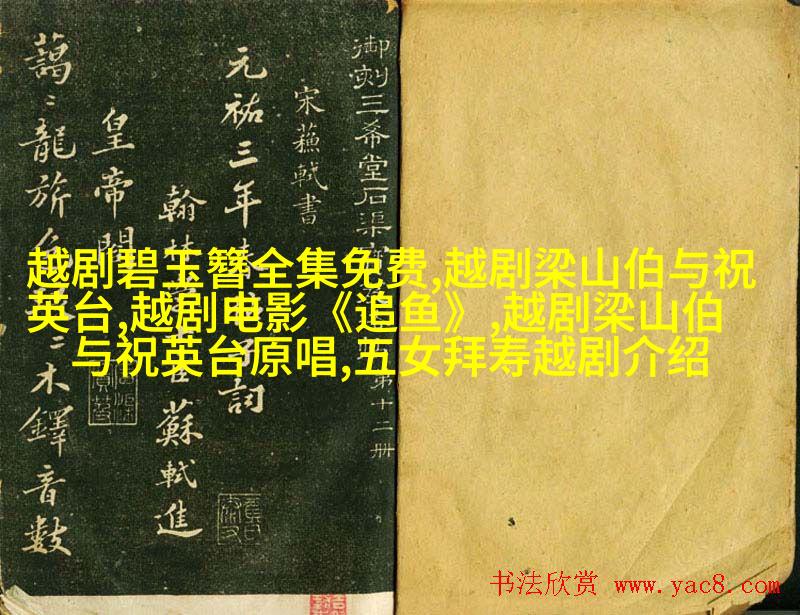 越剧碧玉簪全集免费,越剧梁山伯与祝
英台,越剧电影《追鱼》,越剧梁山伯
与祝英台原唱,五女拜寿越剧介绍
御刻三希堂石渠 第十二册
宋蘓軾書
元祐三年春 子詞
翰林 蘇軾進
皇帝閣
藹〻龍旂色 〻木鐸音數
书法欣赏 www.yac8.com